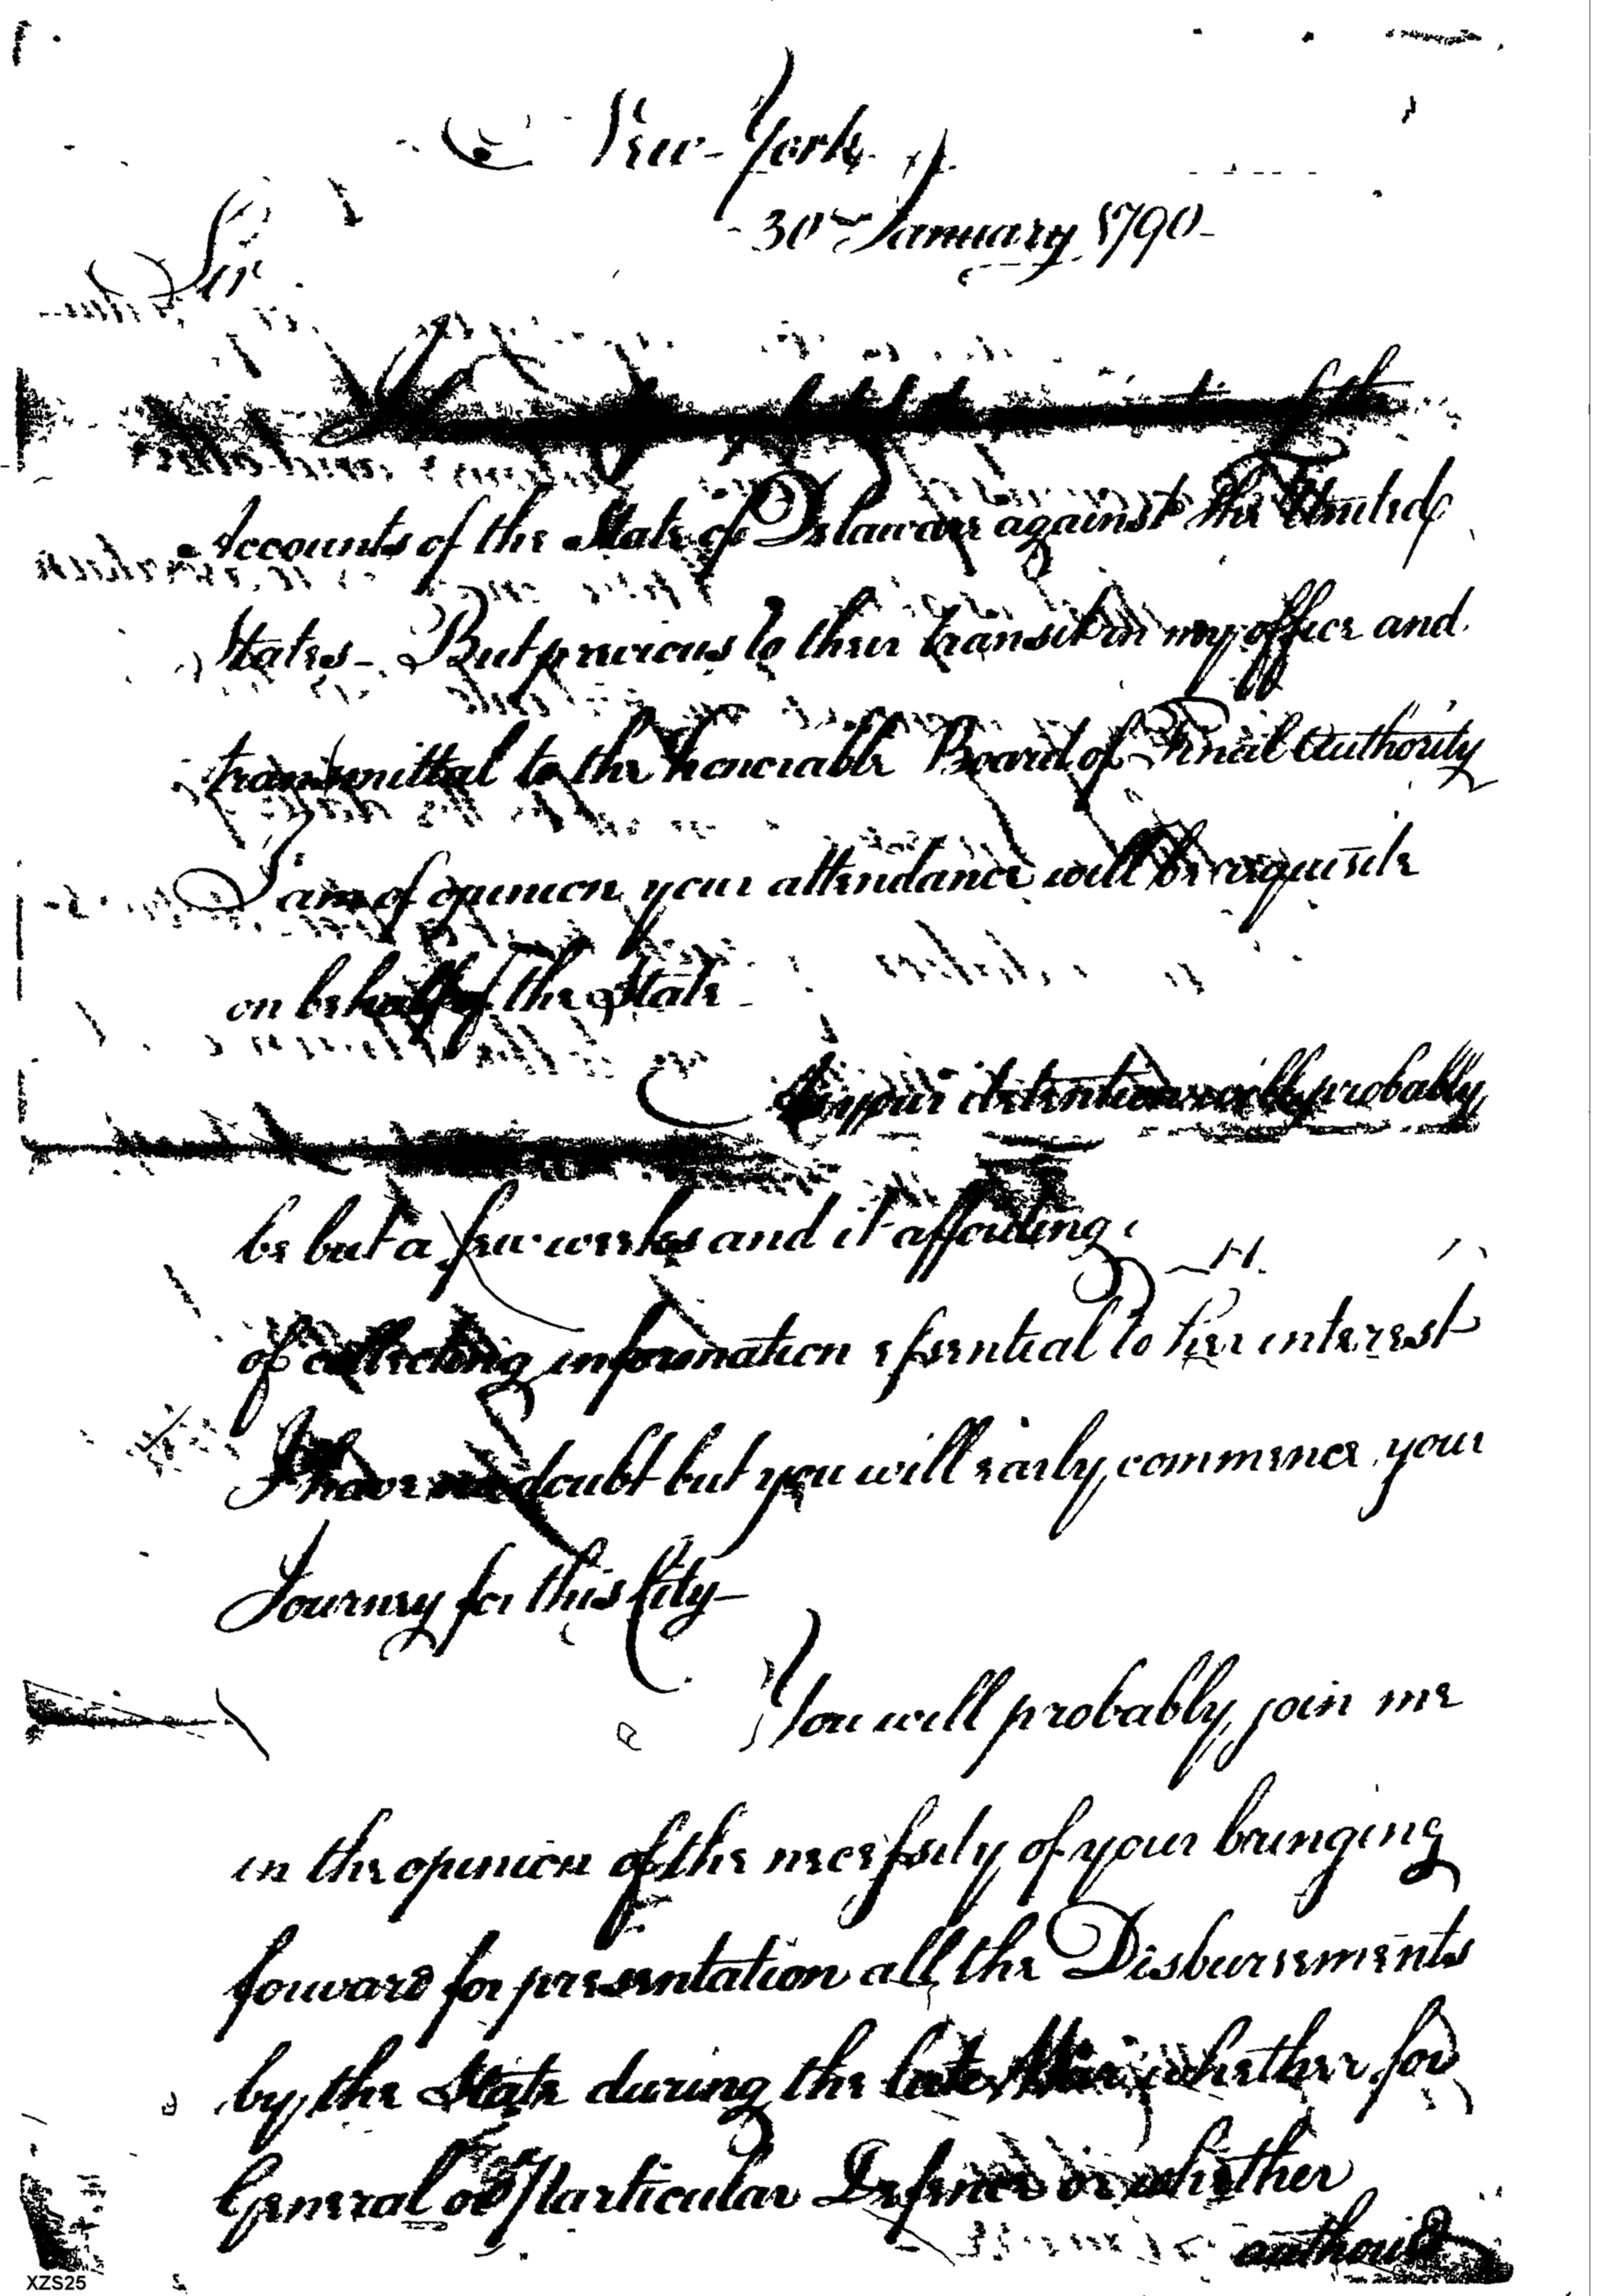 New-York
30th January 1790-
Sir
of the
Accounts of the State of Delaware against the United
States - But previous to their transit in my office and
transmittal to the honorable Board of Final Authority
I am of opinion your attendance will be requisite
on behalf of the State
As your detention will probably
be but a few weeks and it affording
of collecting information essential to her interest
I have no doubt but you will early commence your
Journey for this City-
You will probably join me
in the opinion of the necessity of your bringing
forward for presentation all the Disbursements
by the State during the late War whether for
General or Particular Defence or whether
authorised
XZS25